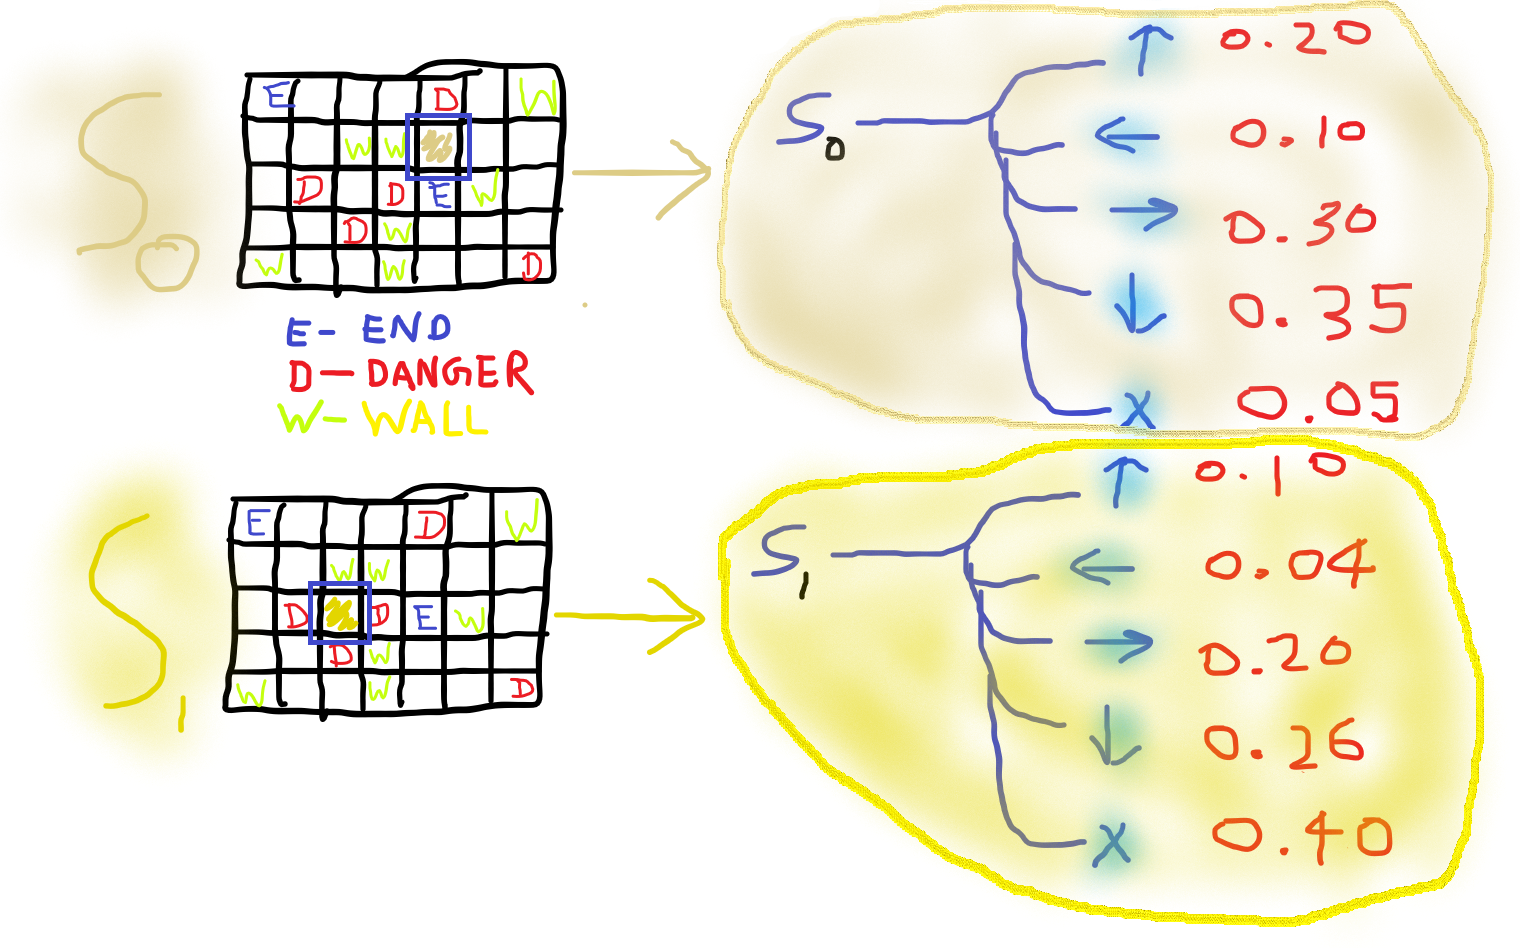 S0
E D W
W W
D D E W
D W
W W D
E - END
D - DANGER
W - WALL
S0
↑ 0.20
← 0.10
→ 0.30
↓ 0.35
X 0.05
S1
E D W
W W
D D E W
D W
W W D
S1
↑ 0.10
← 0.04
→ 0.20
↓ 0.26
X 0.40